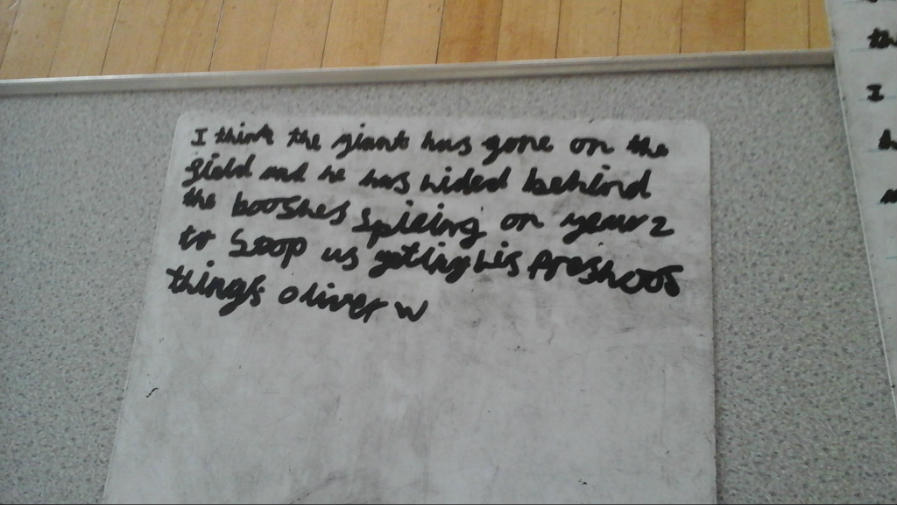 I think the giant has gone on the
gield and he has hided behind
the booshes spieing on year 2
to Soop us geting his preshoos
things oliver w
th
I